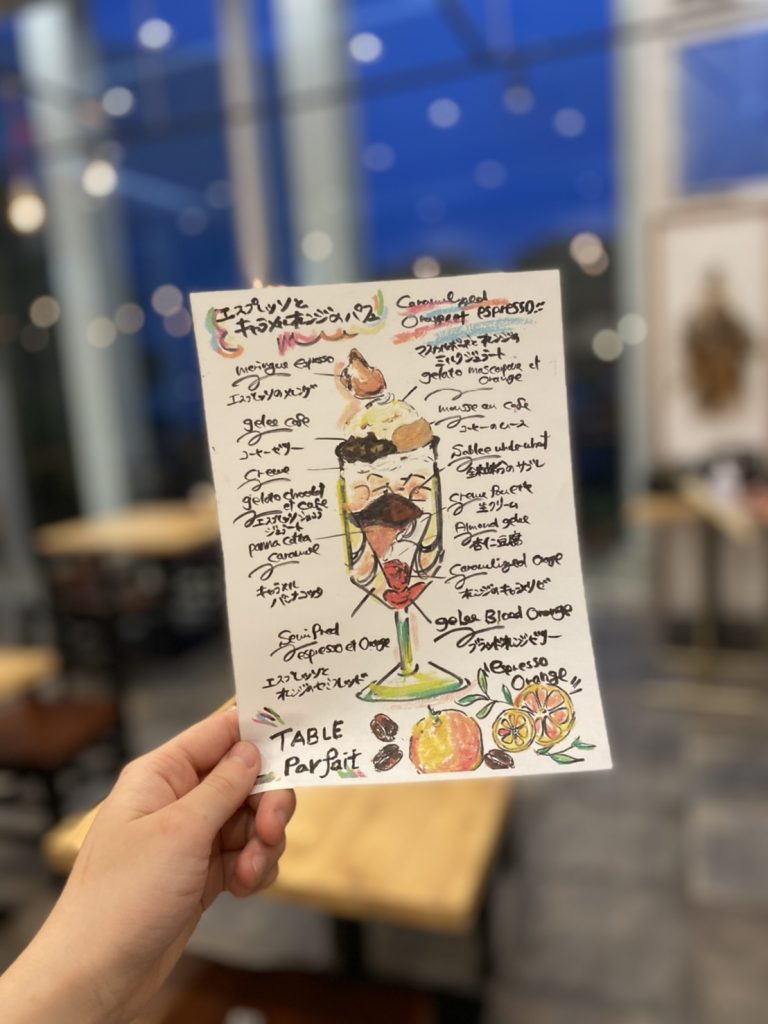 エスプレッソと
キャラメルオレンジのパフェ
Caramelized
Orange et espresso!!
meringue espresso
エスプレッソのメレンゲ
gelee cafe
コーヒーゼリー
Creme
gelato chocolat
et cafe
エスプレッソショコラ
ジェラート
panna cotta
Caramel
キャラメル
パンナコッタ
Semi Fred
espresso et Orange
エスプレッソと
オレンジのセミフレッド
マスカルポーネとオレンジの
ミルクジェラート
gelato mascarpone et
Orange
mousse au cafe
コーヒーのムース
Sablee whole wheat
全粒粉のサブレ
Creme Fouette
生クリーム
Almond gelee
杏仁豆腐
Caramelized Orange
オレンジのキャラメリゼ
gelee Blood Orange
ブラッドオレンジゼリー
"espresso
Orange"
TABLE
Parfait